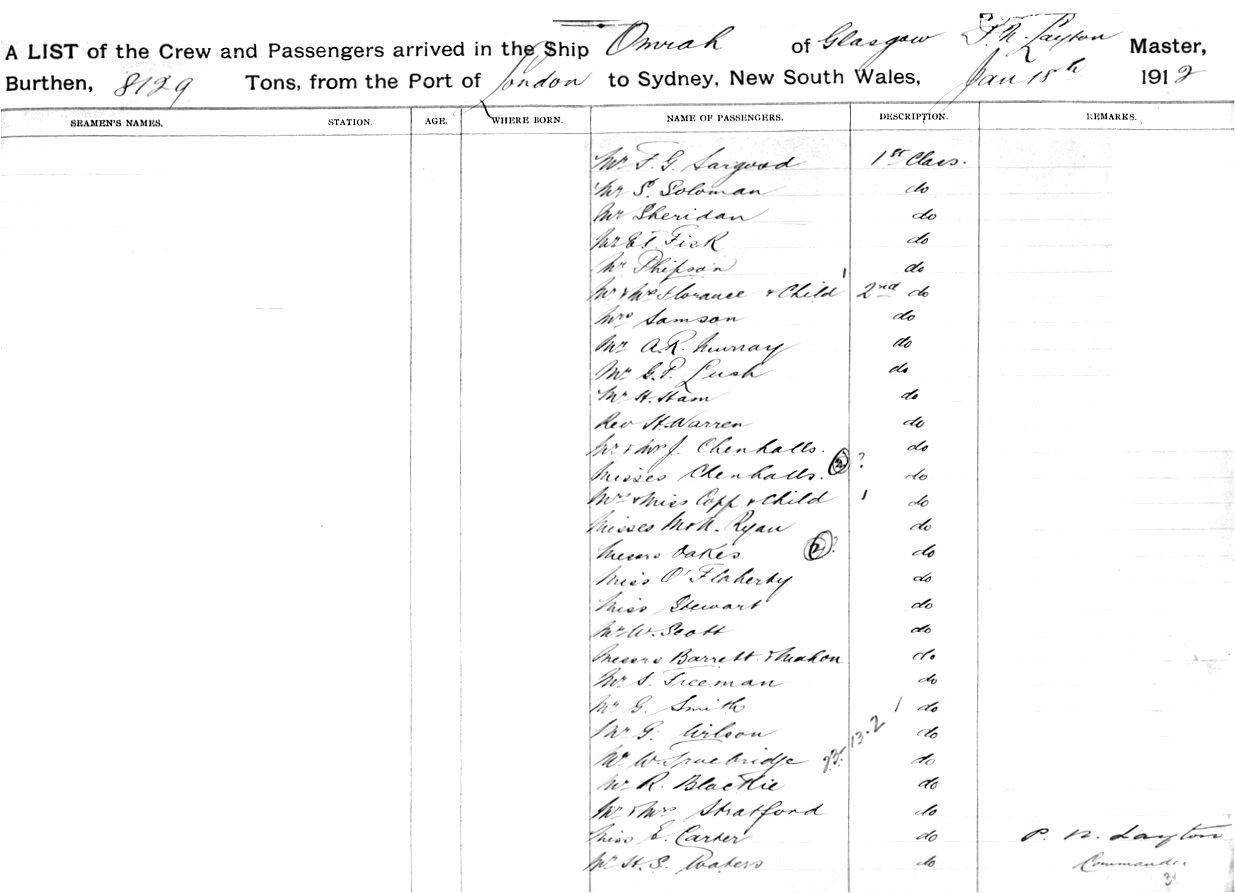 A LIST of the Crew and Passengers arrived in the Ship Omrah of Glasgow P. N. Layton Master,
Burthen, 8129 Tons, from the Port of London to Sydney, New South Wales, Jan 18th 1912
SEAMEN'S NAMES. STATION. AGE. WHERE BORN. NAME OF PASSENGERS. DESCRIPTION. REMARKS.
Mr F. G. Sargood 1st Class.
Mr S. Soloman do
Mr Sheridan do
Mr E. F. Fisk do
Mr Phipson do
Mr & Mrs Florance & Child 1 2nd do
Mrs Samson do
Mr A. R. Murray do
Mr G. P. Lush do
Mr H. Ham do
Rev H. Warren do
Mr & Mrs J. Chenhalls. do
Misses Chenhalls. 2 ? do
Mrs & Miss Copp & Child 1 do
Misses M & K. Ryan do
Messrs Oakes 2 ? do
Miss O'Flaherty do
Miss Stewart do
Mr W. Scott do
Messrs Barrett & Mahon do
Mr S. Freeman do
Mr G. Smith 1 do
Mr G. Wilson 13.2 do
Mr W. Truebridge do
Mr R. Blackie do
Mr & Mrs Stratford do
Miss E. Carter do P. N. Layton
Mr H. S. Waters do Commander